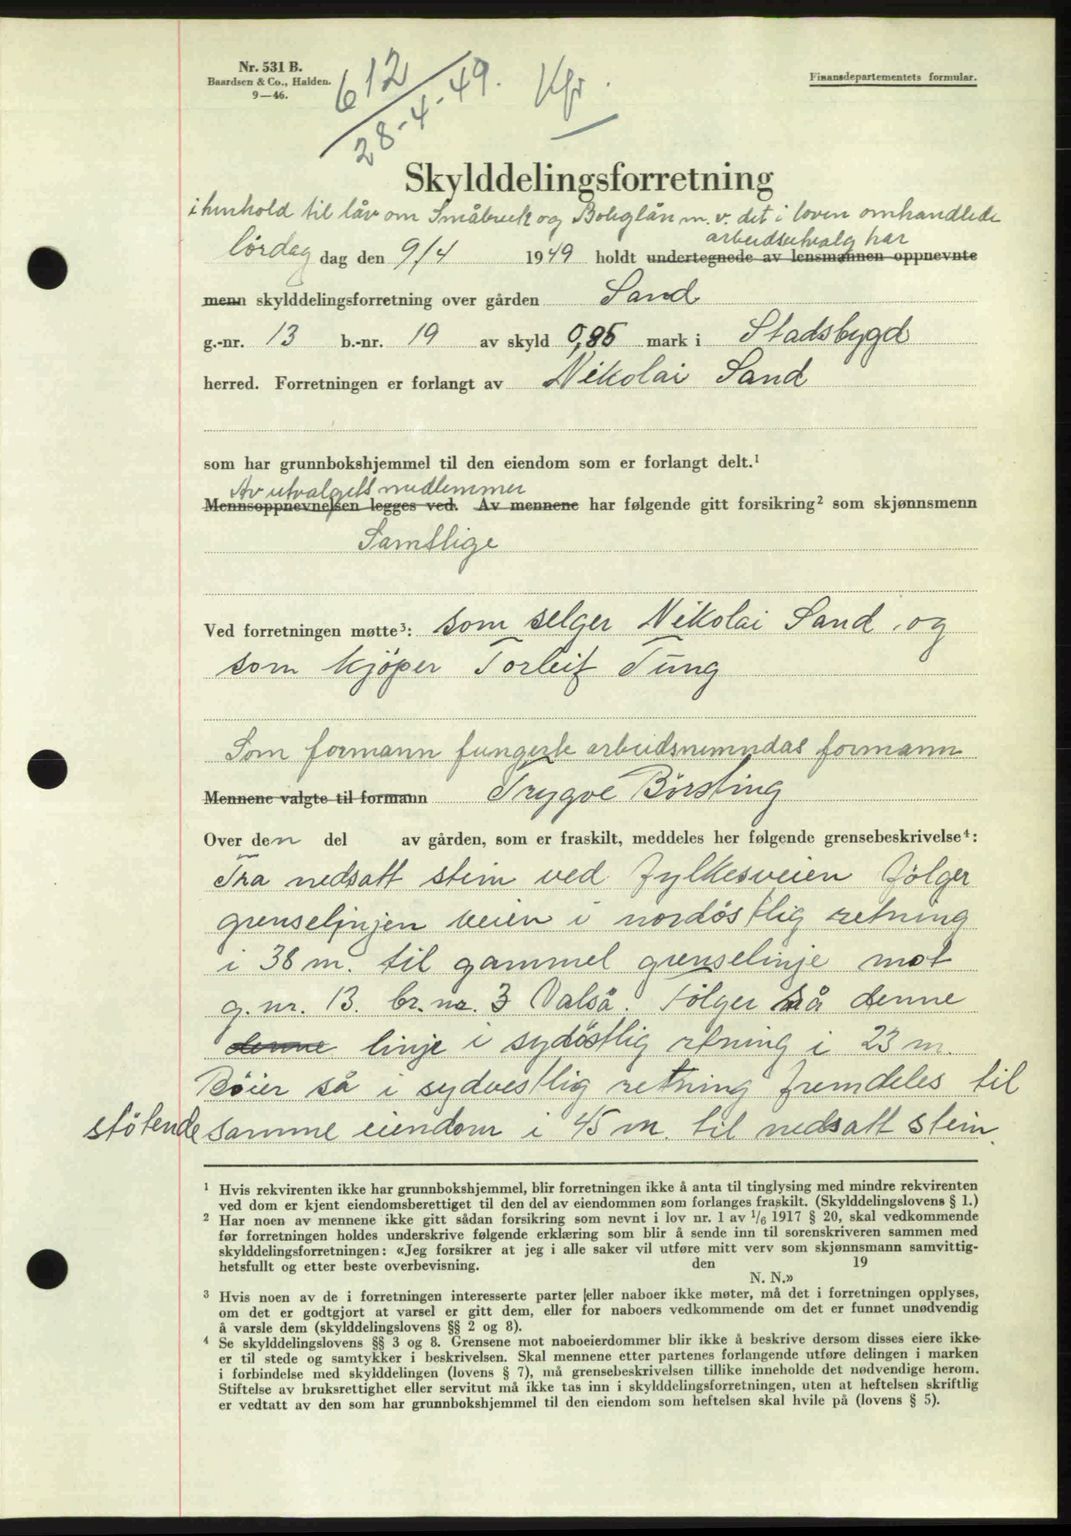 Nr. 531 B.
Baardsen & Co., Halden.
9—46.
612
28-4-49.
Kfr.
Finansdepartementets formular.
Skylddelingsforretning
i henhold til lån om Småbruk og Boliglån m. v. det i loven omhandlede
arbeidsutvalg har
lördag dag den 9/4 1949 holdt undertegnede av lensmannen oppnevnte
menn skylddelingsforretning over gården Sand
g.-nr. 13 b.-nr. 19 av skyld 0,85 mark i Stadsbygd
herred. Forretningen er forlangt av Nikolai Sand
som har grunnbokshjemmel til den eiendom som er forlangt delt.¹
Av utvalgets medlemmer
Mennsoppnevnelsen legges ved. Av mennene har følgende gitt forsikring² som skjønnsmenn
Samtlige
Ved forretningen møtte³: som selger Nikolai Sand, og
som kjøper Torleif Tung
Som formann fungerte arbeidsnemndas formann
Mennene valgte til formann Trygve Börsting
Over den del av gården, som er fraskilt, meddeles her følgende grensebeskrivelse⁴:
Fra nedsatt stein ved fylkesveien følger
grenselinjen veien i nordöstlig retning
i 38 m. til gammel grenselinje mot
g. nr. 13. br. nr. 3 Valså. Følger så denne
denne linje i sydöstlig retning i 23 m.
Böier så i sydvestlig retning fremdeles til
stötende samme eiendom i 45 m. til nedsatt stein.
¹ Hvis rekvirenten ikke har grunnbokshjemmel, blir forretningen ikke å anta til tinglysing med mindre rekvirenten
ved dom er kjent eiendomsberettiget til den del av eiendommen som forlanges fraskilt. (Skylddelingslovens § 1.)
² Har noen av mennene ikke gitt sådan forsikring som nevnt i lov nr. 1 av 1/6 1917 § 20, skal vedkommende
før forretningen holdes underskrive følgende erklæring som blir å sende inn til sorenskriveren sammen med
skylddelingsforretningen: «Jeg forsikrer at jeg i alle saker vil utføre mitt verv som skjønnsmann samvittig-
hetsfullt og etter beste overbevisning. den 19
N. N.»
³ Hvis noen av de i forretningen interesserte parter eller naboer ikke møter, må det i forretningen opplyses,
om det er godtgjort at varsel er gitt dem, eller for naboers vedkommende om det er funnet unødvendig
å varsle dem (skylddelingslovens §§ 2 og 8).
⁴ Se skylddelingslovens §§ 3 og 8. Grensene mot naboeierdommer blir ikke å beskrive dersom disses eiere ikke
er til stede og samtykker i beskrivelsen. Skal mennene etter partenes forlangende utføre delingen i marken
i forbindelse med skylddelingen (lovens § 7), må grensebeskrivelsen tillike inneholde det nødvendige herom.
Stiftelse av bruksrettighet eller servitut må ikke tas inn i skylddelingsforretningen, uten at heftelsen skriftlig
er vedtatt av den som har grunnbokshjemmel til den eiendom som heftelsen skal hvile på (lovens § 5).